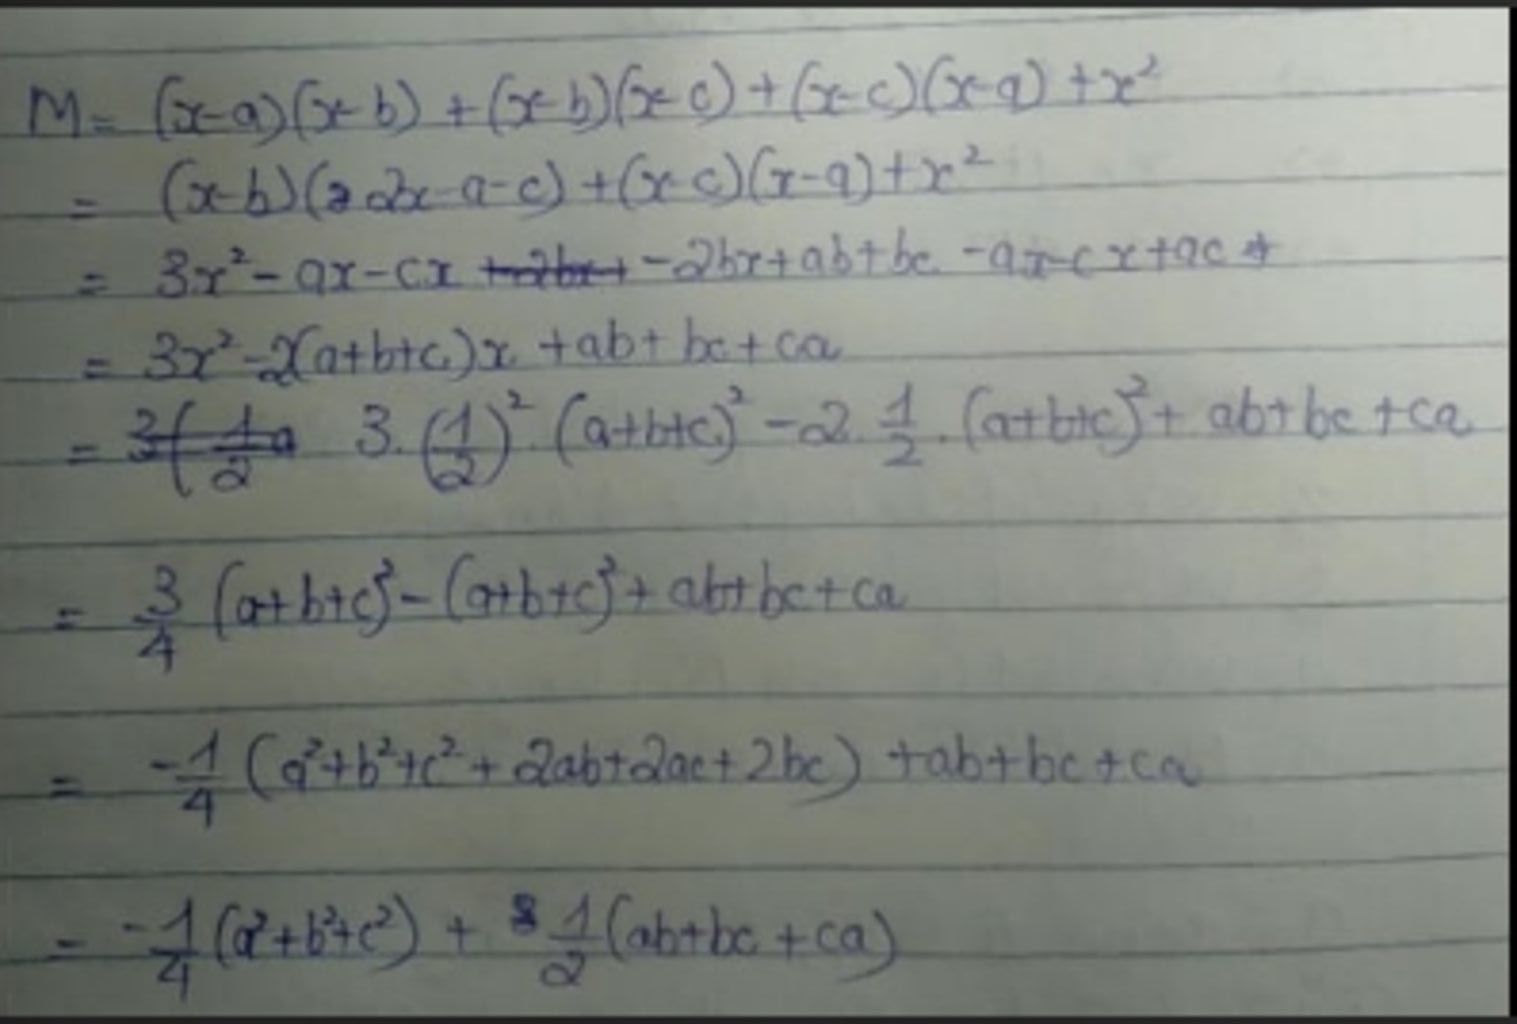 M = (x-a)(x-b) + (x-b)(x-c) + (x-c)(x-a) + x²
= (x-b)(2x-a-c) + (x-c)(x-a) + x²
= 3x² - ax - cx - 2bx + ab + bc - ax - cx + ac +
= 3x² - 2(a+b+c)x + ab + bc + ca
= 3.(1/2)².(a+b+c)² - 2.1/2.(a+b+c)² + ab + bc + ca
= 3/4 (a+b+c)² - (a+b+c)² + ab + bc + ca
= -1/4 (a²+b²+c² + 2ab + 2ac + 2bc) + ab + bc + ca
= -1/4 (a²+b²+c²) + 1/2 (ab + bc + ca)